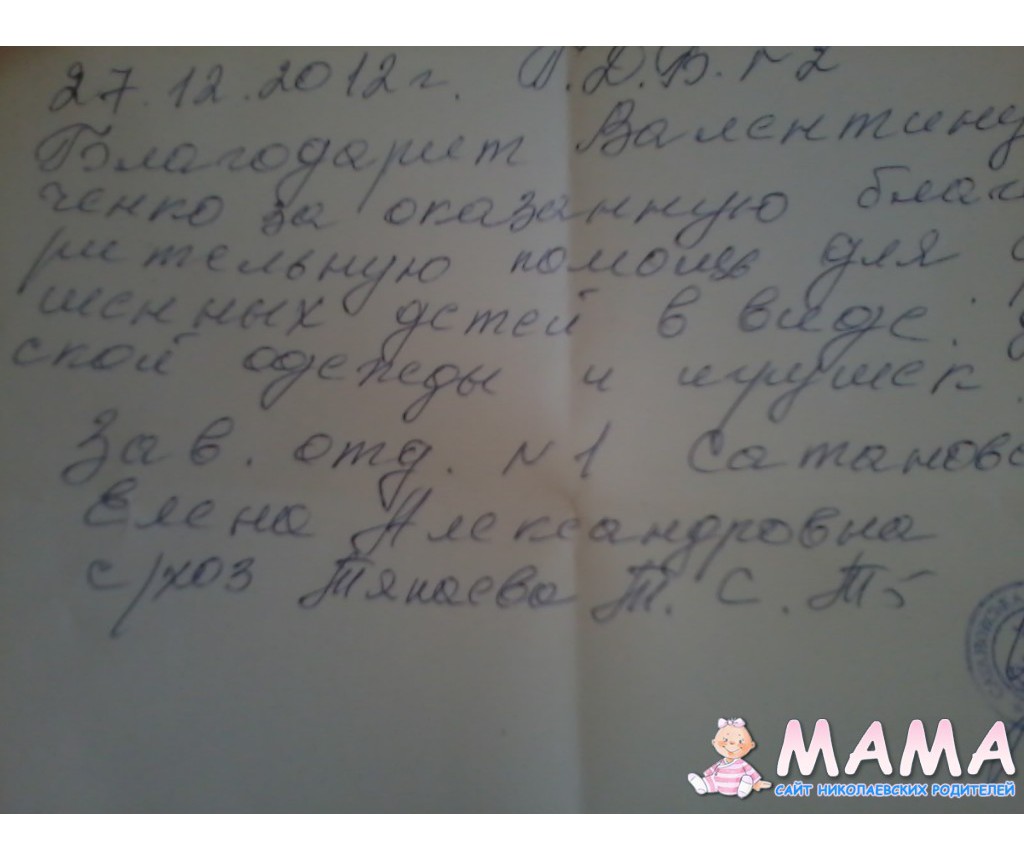 27.12.2012г. Г.Д.Б.№2
Благодарит Валентину
ченко за оказанную благ
рительную помощь для
шенных детей в виде:
ской одежды и игрушек.
Зав. отд. №1 Сатановс
Елена Александровна
с/хоз Тяпаева Т. С.
МАМА
САЙТ НИКОЛАЕВСКИХ РОДИТЕЛЕЙ